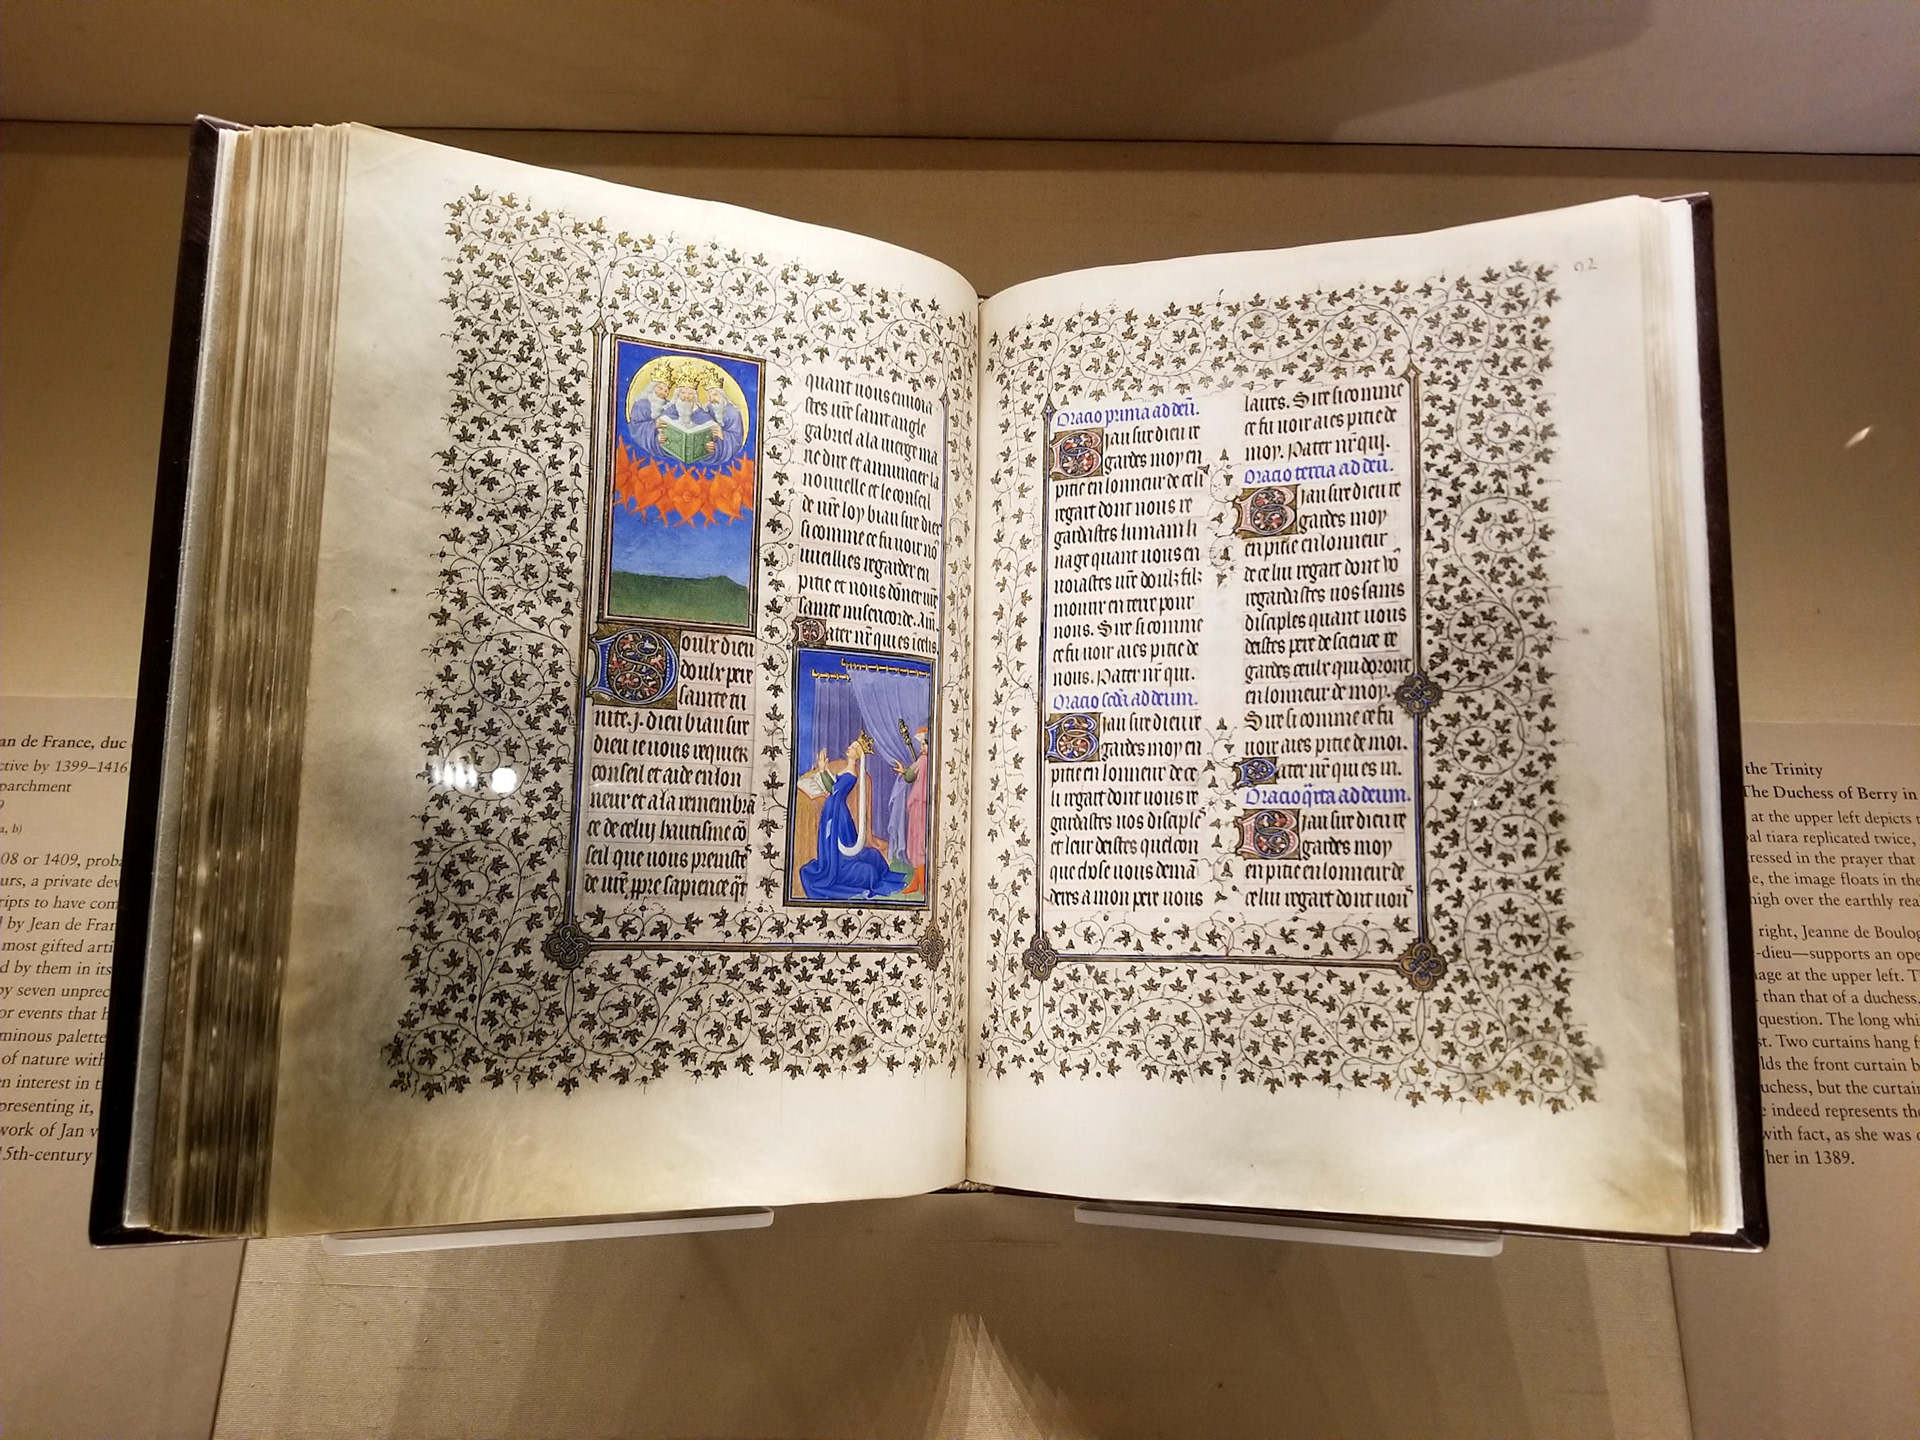 quant nous enuoia
stes vr̄e saint angle
gabriel a la vierge ma
rie dire et annuncier la
nouuelle et le conseil
de vr̄e loy biau sire dieu
si comme ce fu voir nō
vueillies regarder en
pitie et nous dōner vr̄e
sainte misericorde. Am̄.
Pater nr̄ qui es ī celis.
Doulx dieu
doulx pere
sainte tri
nite. j. dieu biau sire
dieu ie vous requier
conseil et aide en lon
neur et a la remembrā
ce de celuy hautisme cō
seil que vous preniste
de vr̄e ppre sapience qn̄t
92
Oracio prima ad deū.
Biau sire dieu re
gardes moy en
pitie en lonneur de celui
regart dont vous re
gardastes lumain li
nage quant vous en
uoiastes vr̄e doulz filz
mourir en terre pour
nous. Sire si comme
ce fu voir aies pitie de
nous. Pater nr̄ qui.
Oracio scd̄a ad deum.
Biau sire dieu re
gardes moy en
pitie en lonneur de ce
li regart dont vous re
gardastes vos disciples
et leur deistes quelcon
que chose vous demā
deres a mon pere vous
laures. Sire si comme
ce fu voir aies pitie de
moy. Pater nr̄ qui.
Oracio tercia ad deū.
Biau sire dieu re
gardes moy
en pitie en lonneur
de celui regart dont vo
regardastes vos sains
disciples quant vous
deistes pere de science re
gardes ceulx qui doront
en lonneur de moy.
Sire si comme ce fu
voir aies pitie de moi.
Pater nr̄ qui es in.
Oracio q̄rta ad deum.
Biau sire dieu re
gardes moy
en pitie en lonneur de
celui regart dont vous
an de France, duc
ctive by 1399–1416
parchment
9
a, b)
08 or 1409, proba
urs, a private dev
ripts to have com
l by Jean de Fran
most gifted arti
d by them in its
by seven unprec
or events that h
minous palette
of nature with
en interest in t
presenting it,
work of Jan v
15th-century
the Trinity
The Duchess of Berry in
at the upper left depicts t
pal tiara replicated twice,
ressed in the prayer that
e, the image floats in the
high over the earthly rea
right, Jeanne de Boulog
-dieu—supports an ope
nage at the upper left. T
than that of a duchess.
question. The long whi
st. Two curtains hang f
lds the front curtain b
uchess, but the curtai
e indeed represents the
with fact, as she was o
her in 1389.